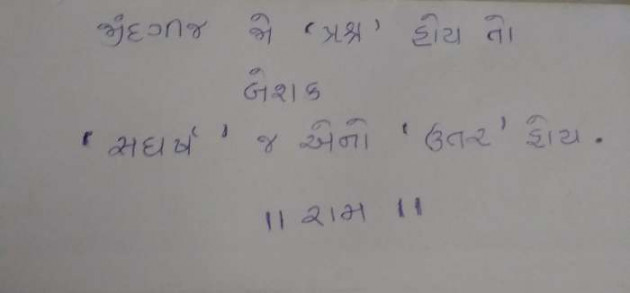 જીંદગીજ જો ‘પ્રશ્ન’ હોય તો
બેશક
‘સઘર્ષ’ જ એનો ‘ઉતર’ હોય.
॥ રામ ॥